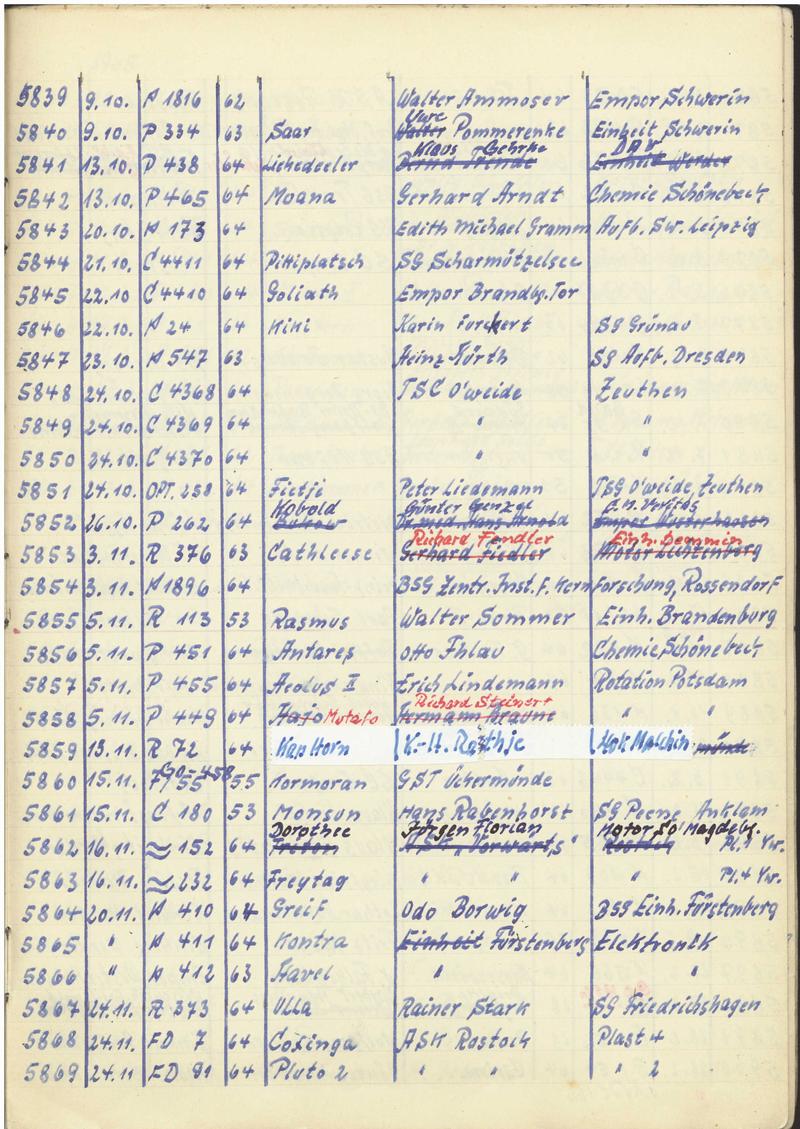 5839 9.10. A 1816 62 Walter Ammoser Empor Schwerin
Uwe
5840 9.10. P 334 63 Saar Walter Pommerenke Einheit Schwerin
Klaus Gehrke DAV
5841 13.10. P 438 64 Lichedeeler Bernd Einheit Werder
5842 13.10. P 465 64 Moana Gerhard Arndt Chemie Schönebeck
5843 20.10. A 173 64 Edith Michael Gramm Aufb. Sw. Leipzig
5844 21.10. C 4411 64 Pittiplatsch SG Scharmützelsee
5845 22.10 C 4410 64 Goliath Empor Brandbg. Tor
5846 22.10. A 24 64 Kiki Karin SG Grünau
5847 23.10. A 547 63 Heinz Fürth SG Aufb. Dresden
5848 24.10. C 4368 64 TSC O'weide Zeuthen
5849 24.10. C 4369 64 " "
5850 24.10. C 4370 64 " "
5851 24.10. OPT. 258 64 Fietje Peter Liedemann TSG O'weide, Zeuthen
Kobold Günter
5852 26.10. P 262 64 Dr. med. Hans Arnold Empor Wusterhausen
Richard Fendler Einh. Demmin
5853 3.11. R 376 63 Cathleese Gerhard Fiedler Motor Lichtenberg
5854 3.11. A 1896 64 BSG Zentr. Inst. f. Kernforschung, Rossendorf
5855 5.11. R 113 53 Rasmus Walter Sommer Einh. Brandenburg
5856 5.11. P 451 64 Antares Otto Ihlau Chemie Schönebeck
5857 5.11. P 455 64 Aeolus II Erich Lindemann Rotation Potsdam
Richard Steinert
5858 5.11. P 449 64 Hajo Mutafo Hermann Braune " "
5859 13.11. R 72 64 Kap Horn K.-H. Rathje Lok Malchin münde
GO-458
5860 15.11. 55 Kormoran GST Ückermünde
5861 15.11. C 180 53 Monsun Hans Rabenhorst SG Peene Anklam
Dorothee Jürgen Florian Motor SO Magdebg.
5862 16.11. ≈ 152 64 Triton ASK "Vorwärts" Rostock Pl. 4 Yw.
5863 16.11. ≈ 232 64 Freytag " " " Pl. 4 Yw.
5864 20.11. A 410 64 Greif Odo Borwig BSG Einh. Fürstenberg
5865 " A 411 64 Kontra Einheit Fürstenberg Elektronik
5866 " A 412 63 Havel " "
5867 24.11. A 373 64 Ulla Rainer Stark SG Friedrichshagen
5868 24.11. FD 7 64 Coxinga ASK Rostock Plast 4
5869 24.11 FD 91 64 Pluto 2 " " " 2